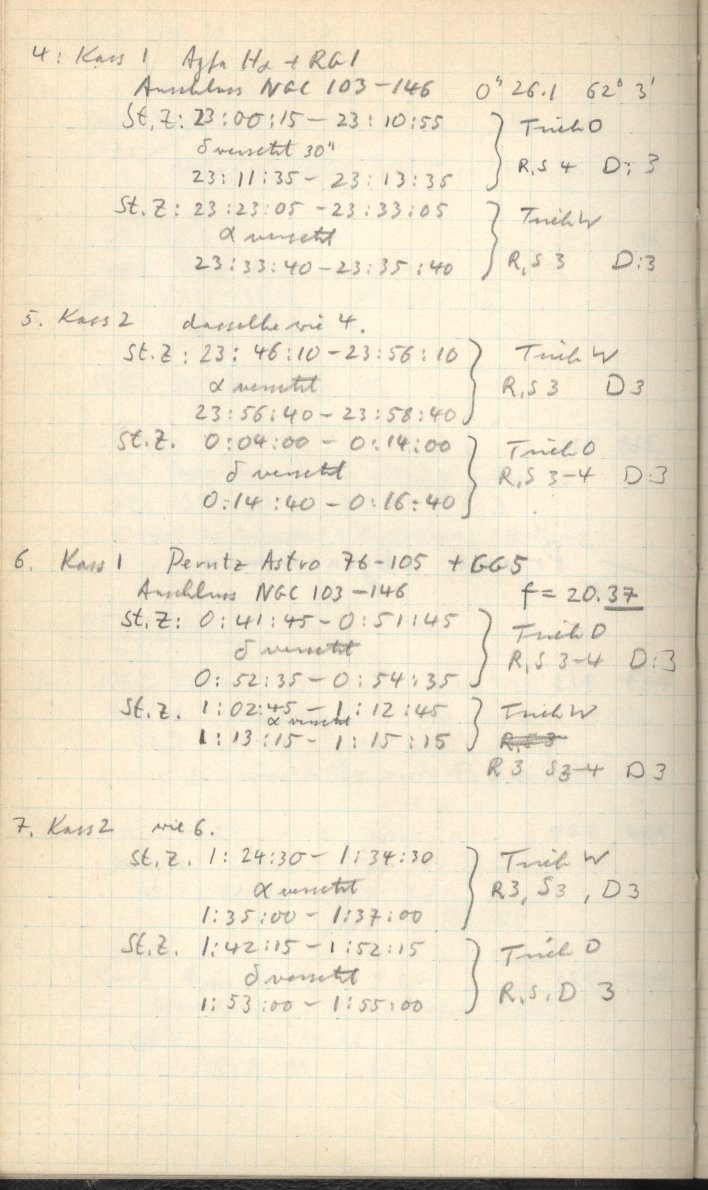 4: Kass 1 Agfa Hα + RG1
Anschluss NGC 103-146 0ʰ 26.1 62° 3'
St. Z: 23:00:15 - 23:10:55 Trieb O
δ versetzt 30"
R,S 4 D: 3
23:11:35 - 23:13:35
St. Z: 23:23:05 - 23:33:05 Trieb W
α versetzt
23:33:40 - 23:35:40 R,S 3 D:3
5. Kass 2 dasselbe wie 4.
St. Z: 23:46:10 - 23:56:10 Trieb W
α versetzt R,S 3 D 3
23:56:40 - 23:58:40
St. Z. 0:04:00 - 0:14:00 Trieb O
δ versetzt R,S 3-4 D:3
0:14:40 - 0:16:40
6. Kass 1 Perutz Astro 76-105 + GG5
Anschluss NGC 103-146 f = 20.37
St. Z: 0:41:45 - 0:51:45 Trieb O
δ versetzt R,S 3-4 D:3
0:52:35 - 0:54:35
St. Z. 1:02:45 - 1:12:45 Trieb W
α versetzt
1:13:15 - 1:15:15 R,S 3
R 3 S3-4 D 3
7. Kass 2 wie 6.
St. Z. 1:24:30 - 1:34:30 Trieb W
α versetzt R3, S3, D3
1:35:00 - 1:37:00
St. Z. 1:42:15 - 1:52:15 Trieb O
δ versetzt
1:53:00 - 1:55:00 R,S,D 3